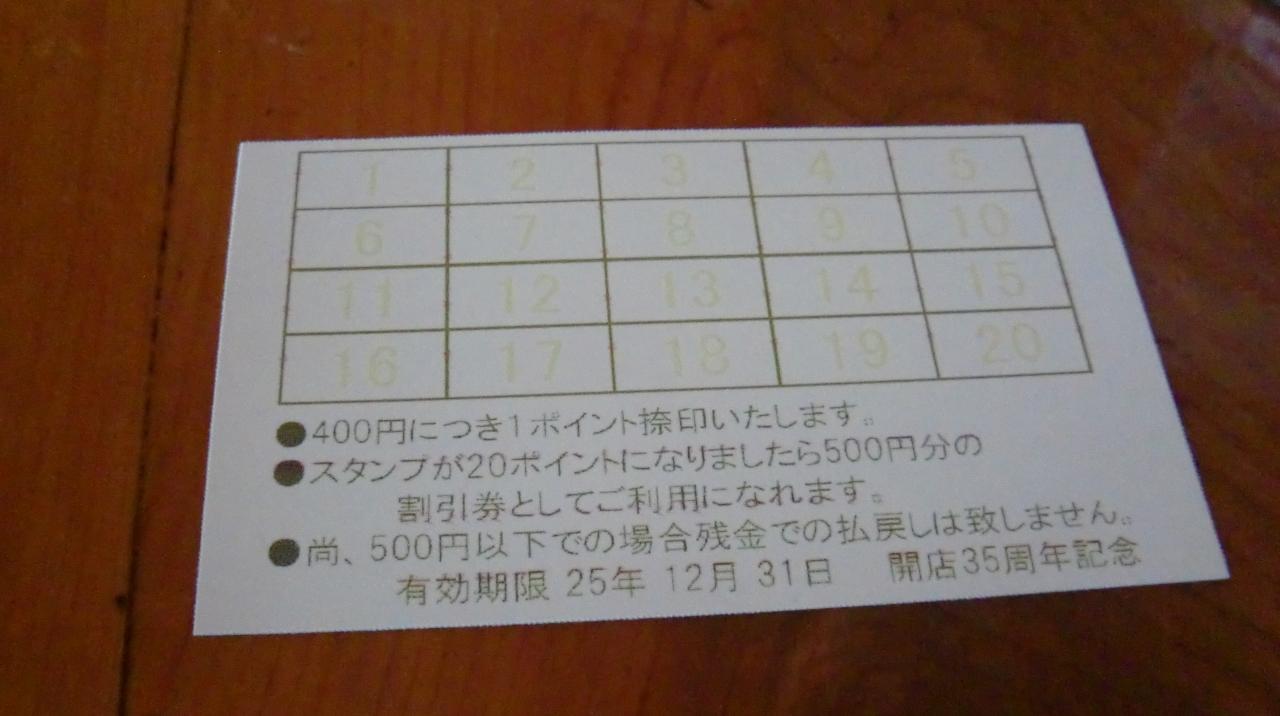 1 2 3 4 5
6 7 8 9 10
11 12 13 14 15
16 17 18 19 20
●400円につき1ポイント捺印いたします。
●スタンプが20ポイントになりましたら500円分の
割引券としてご利用になれます。
●尚、500円以下での場合残金での払戻しは致しません。
有効期限 25年 12月 31日 開店35周年記念